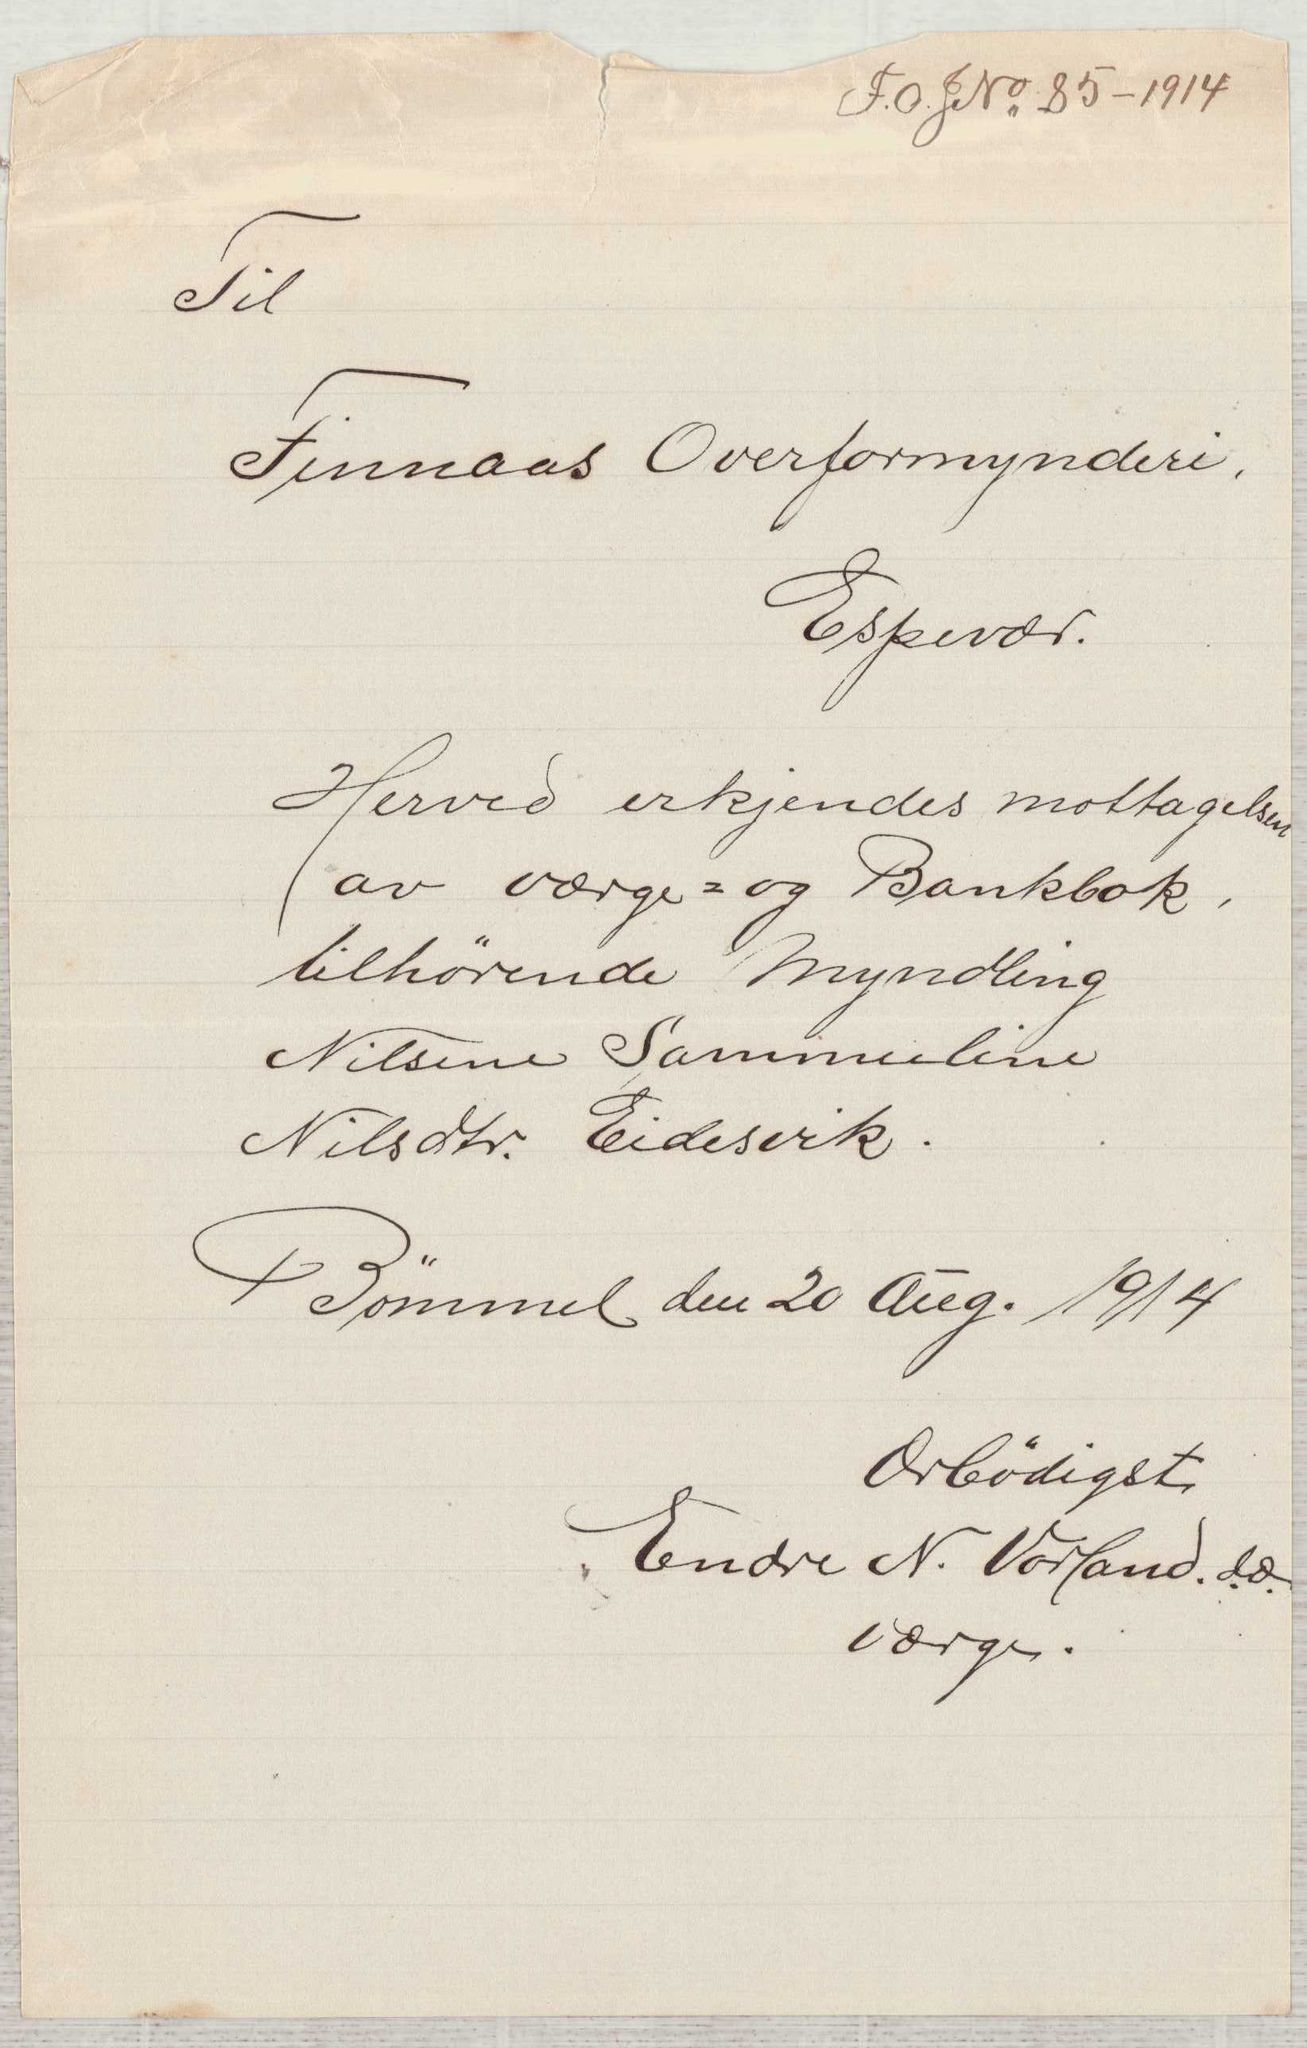 F.O.J.No. 85-1914
Til
Finnaas Overformynderi.
Espevær.
Herved erkjendes mottagelsen
av værge= og Bankbok,
tilhörende Myndling
Nilsine Sammeline
Nilsdtr. Eidesvik.
Bömmel den 20 Aug. 1914
Ærbödigst
Endre N. Vorland.
værge.